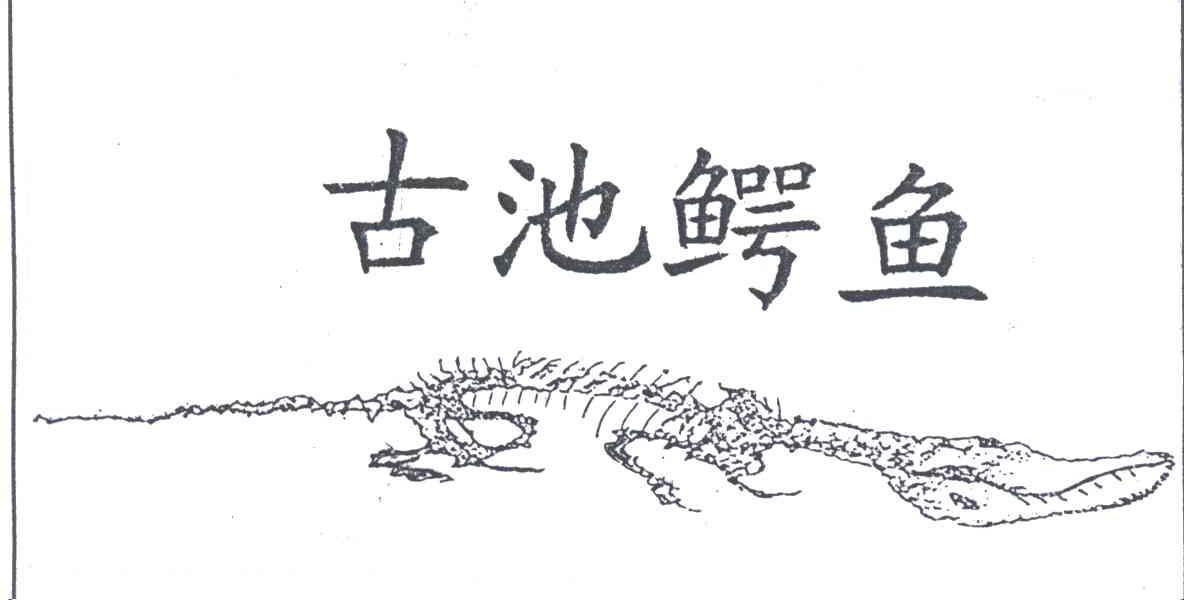 古池鳄鱼